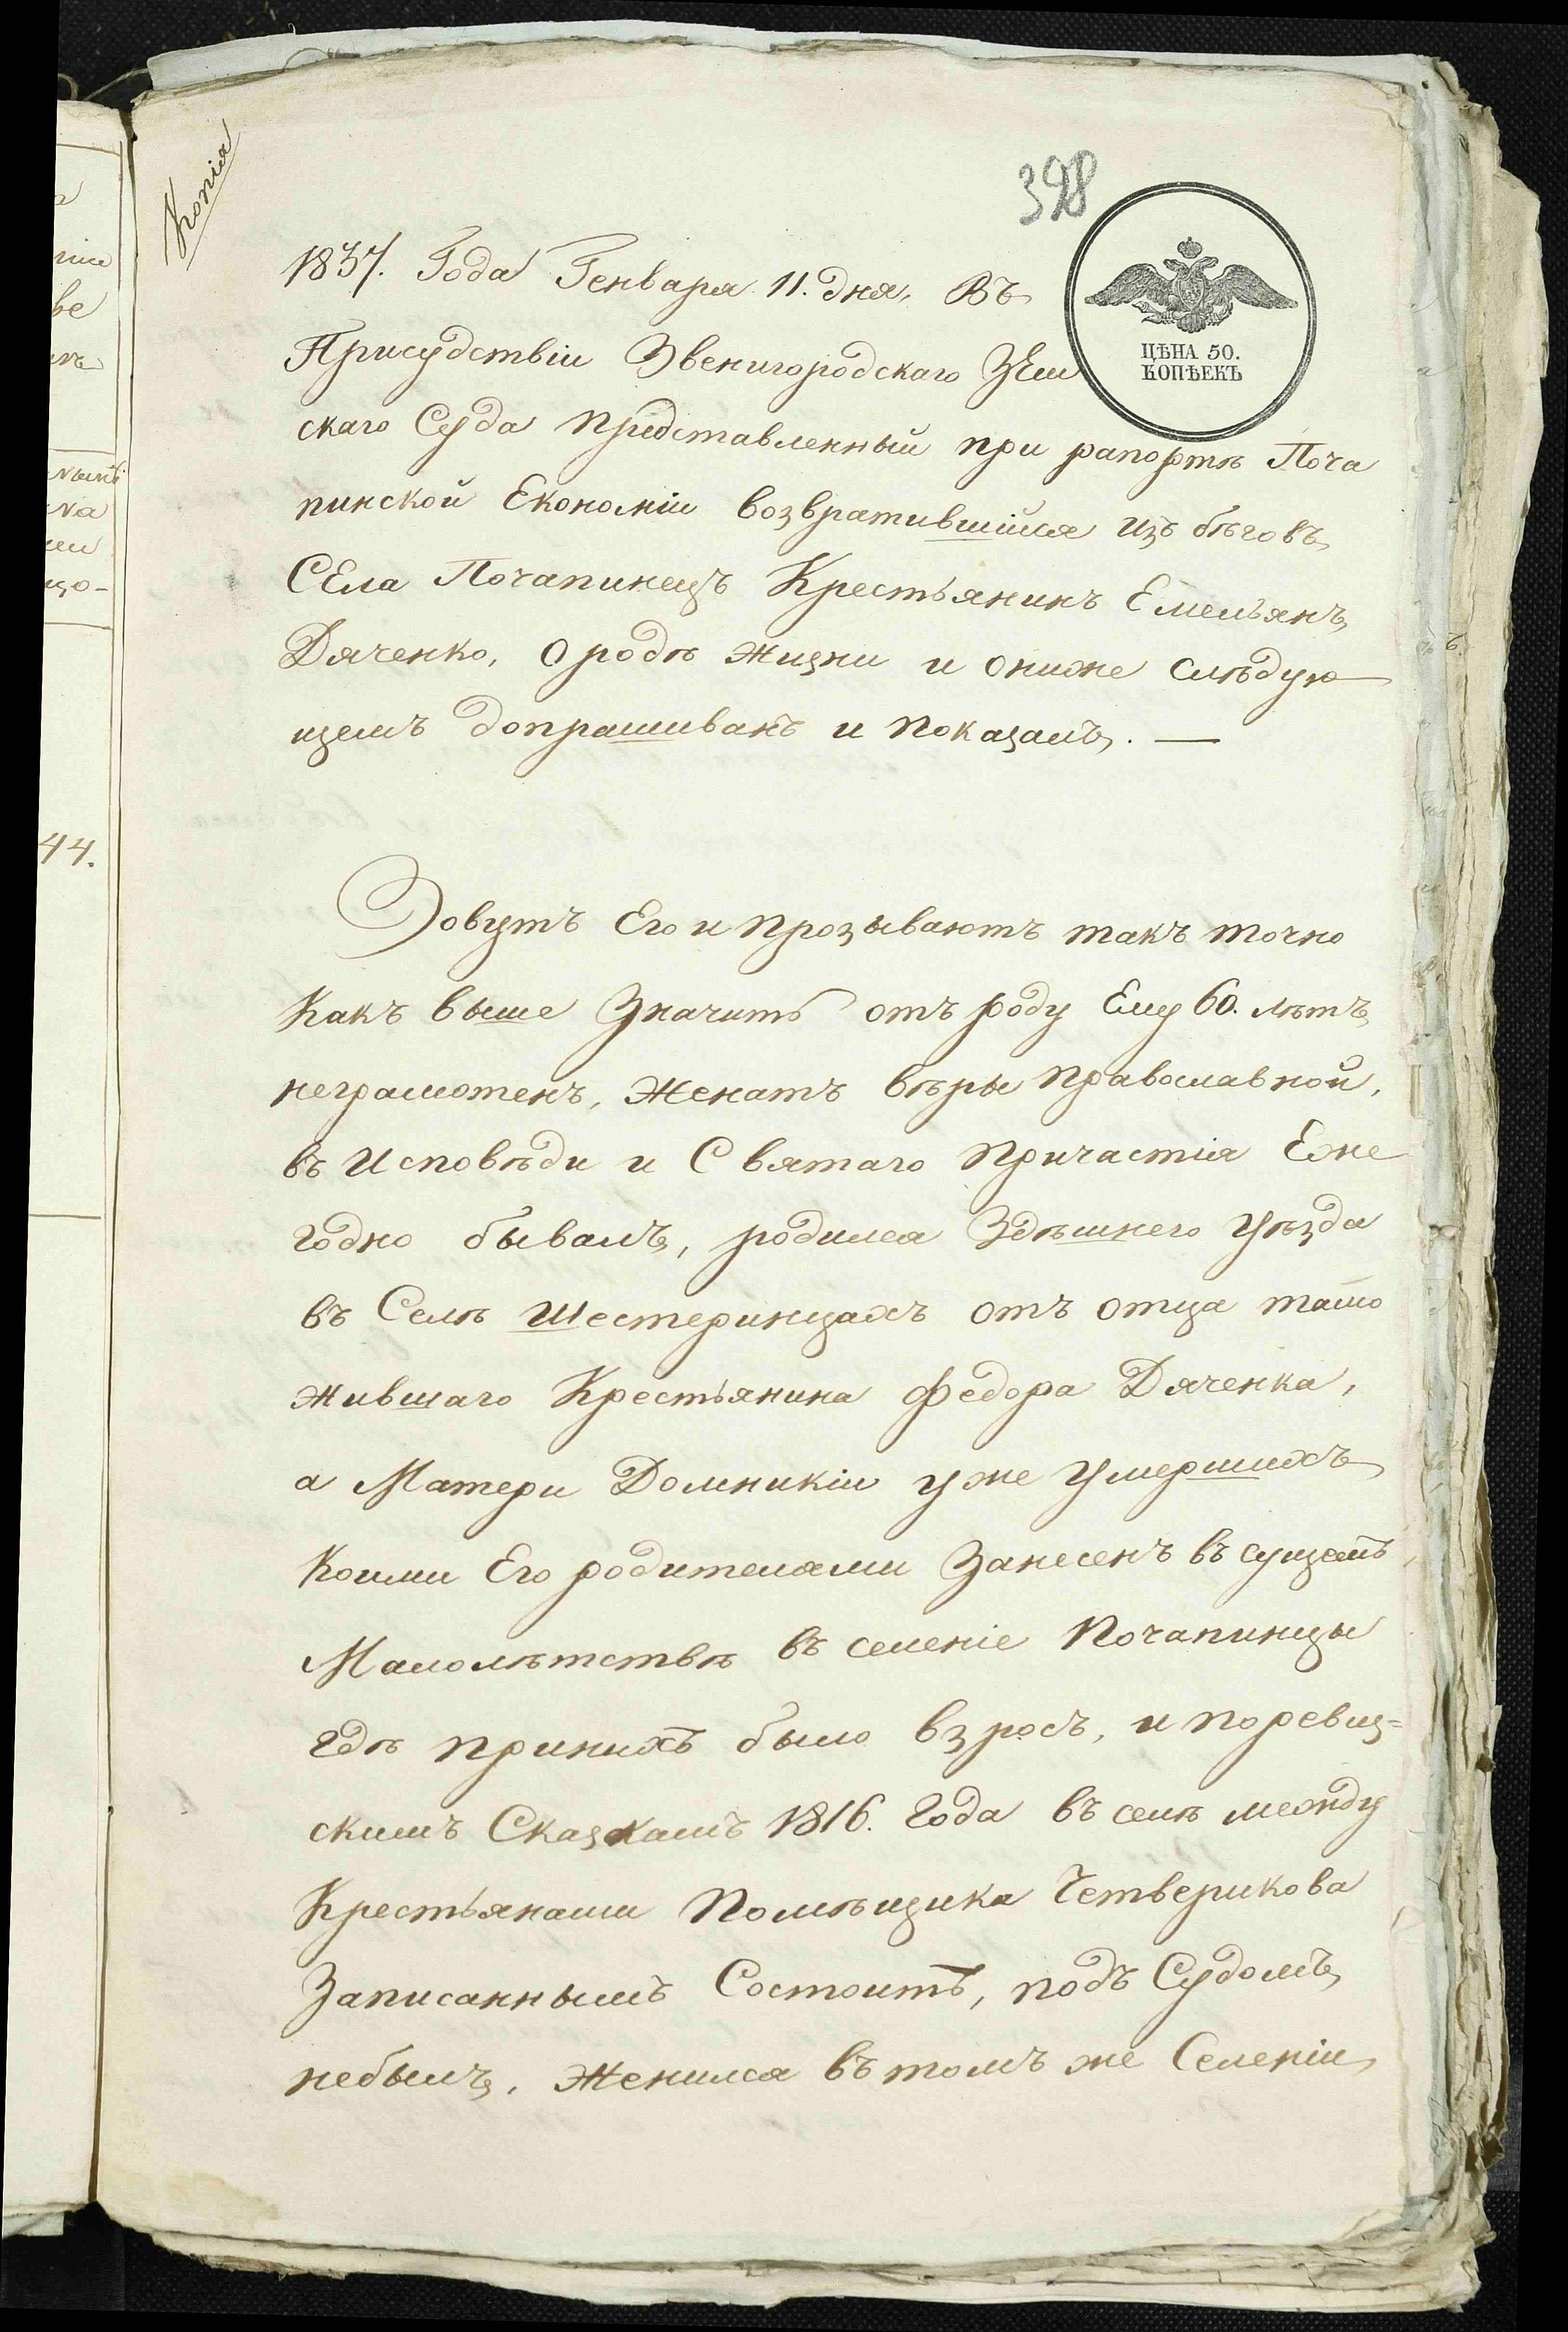 Копія
398
1837. Года Генваря 11. дня, Въ
Присудствіи Звенигородскаго Зем
ЦѢНА 50.
КОПѢЕКЪ
скаго Суда представленный при рапортѣ Поча
пинской Економіи возвратившійся изъ бѣговъ
Села Почапинецъ Крестьянинъ Емельянъ
Дяченко, о родѣ жизни и о ниже слѣдую
щемъ допрашиванъ и показалъ. —
Зовутъ Его и прозываютъ такъ точно
Какъ выше Значитъ отъ роду Ему 60. лѣтъ
неграмотенъ, женатъ вѣры православной,
въ Исповѣди и Святаго Причастія Еже
годно бывалъ, родился Здѣшнего уѣзда
въ Селѣ Шестеринцахъ отъ отца тамо
жившаго Крестьянина Федора Дяченка,
а Матери Домникіи уже умершихъ
Коими Его родителями Занесенъ въ сущемъ
Малолѣтствѣ въ селеніе Почапинцы
гдѣ при нихъ было взросъ, и по ревиз=
скимъ Сказкамъ 1816. Года въ семъ между
Крестьянами Помѣщика Четверикова
Записаннымъ Состоитъ, подъ Судомъ
небылъ, женился въ томъ же Селеніи
44.